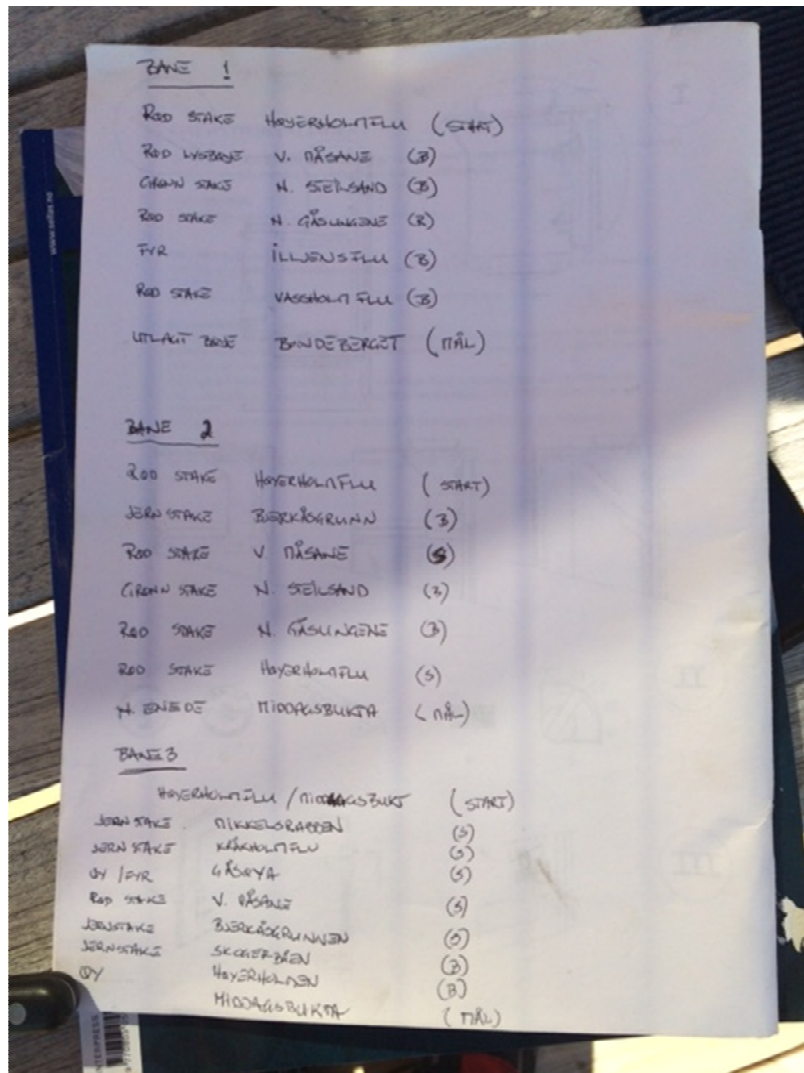 BANE 1
RØD STAKE HØYERHOLMFLU (START)
RØD LYSBØYE V. MÅSANE (B)
GRØNN STAKE N. STEILSAND (B)
RØD STAKE N. GÅSUNGENE (B)
FYR ILLJENSFLU (B)
RØD STAKE VASSHOLM FLU (B)
UTLAGT BØYE BANDEBERGET (MÅL)
BANE 2
RØD STAKE HØYERHOLMFLU (START)
JERNSTAKE BJERKÅSGRUNN (B)
RØD STAKE V. MÅSANE (S)
GRØNN STAKE N. STEILSAND (B)
RØD STAKE N. GÅSUNGENE (B)
RØD STAKE HØYERHOLMFLU (S)
N. ENEDE MIDDAGSBUKTA (MÅL)
BANE 3
HØYERHOLMFLU / MIDDAGSBUKT (START)
JERNSTAKE MIKKELSRABBEN (S)
JERNSTAKE KRÅKHOLMFLU (S)
ØY / FYR GÅSØYA (S)
RØD STAKE V. MÅSANE (S)
JERNSTAKE BJERKÅSGRUNNEN (S)
JERNSTAKE SKOGERBÅEN (B)
ØY HØYERHOLMEN (B)
MIDDAGSBUKTA (MÅL)
www.seilas.no